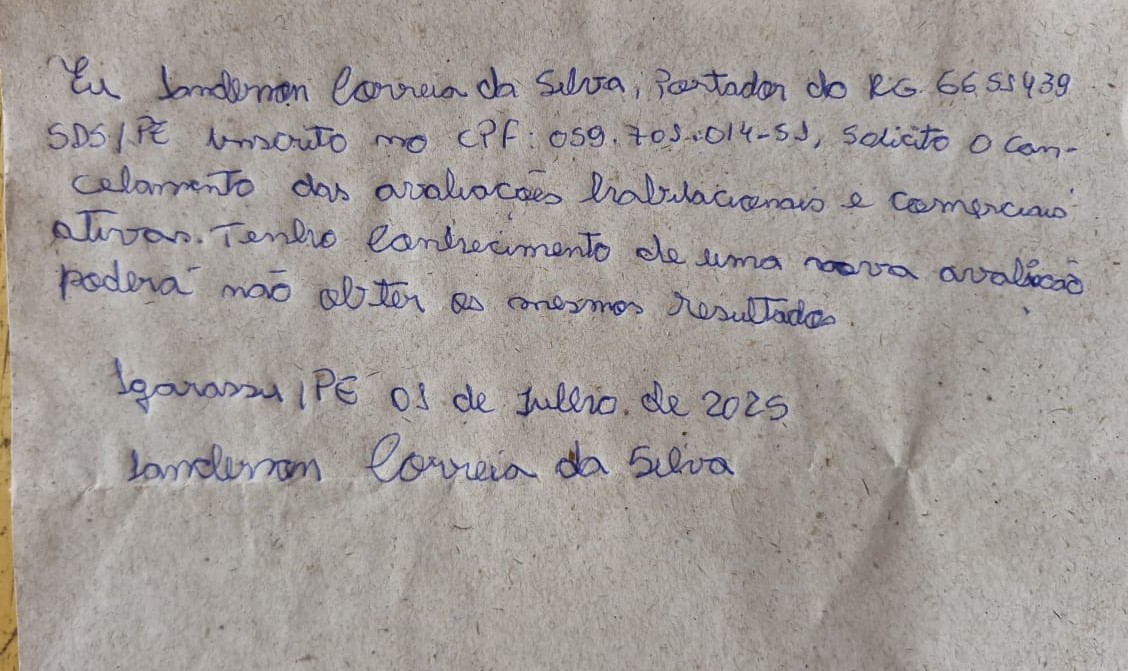 Eu Sanderson Correia da Silva, Portador do RG. 6651439
SDS/PE inscrito no CPF: 059.701.014-51, solicito o can-
celamento das avaliações habitacionais e comerciais
ativas. Tenho conhecimento de uma nova avaliação
poderá não obter os mesmos resultados.
Igarassu/PE 01 de Julho de 2025
Sanderson Correia da Silva